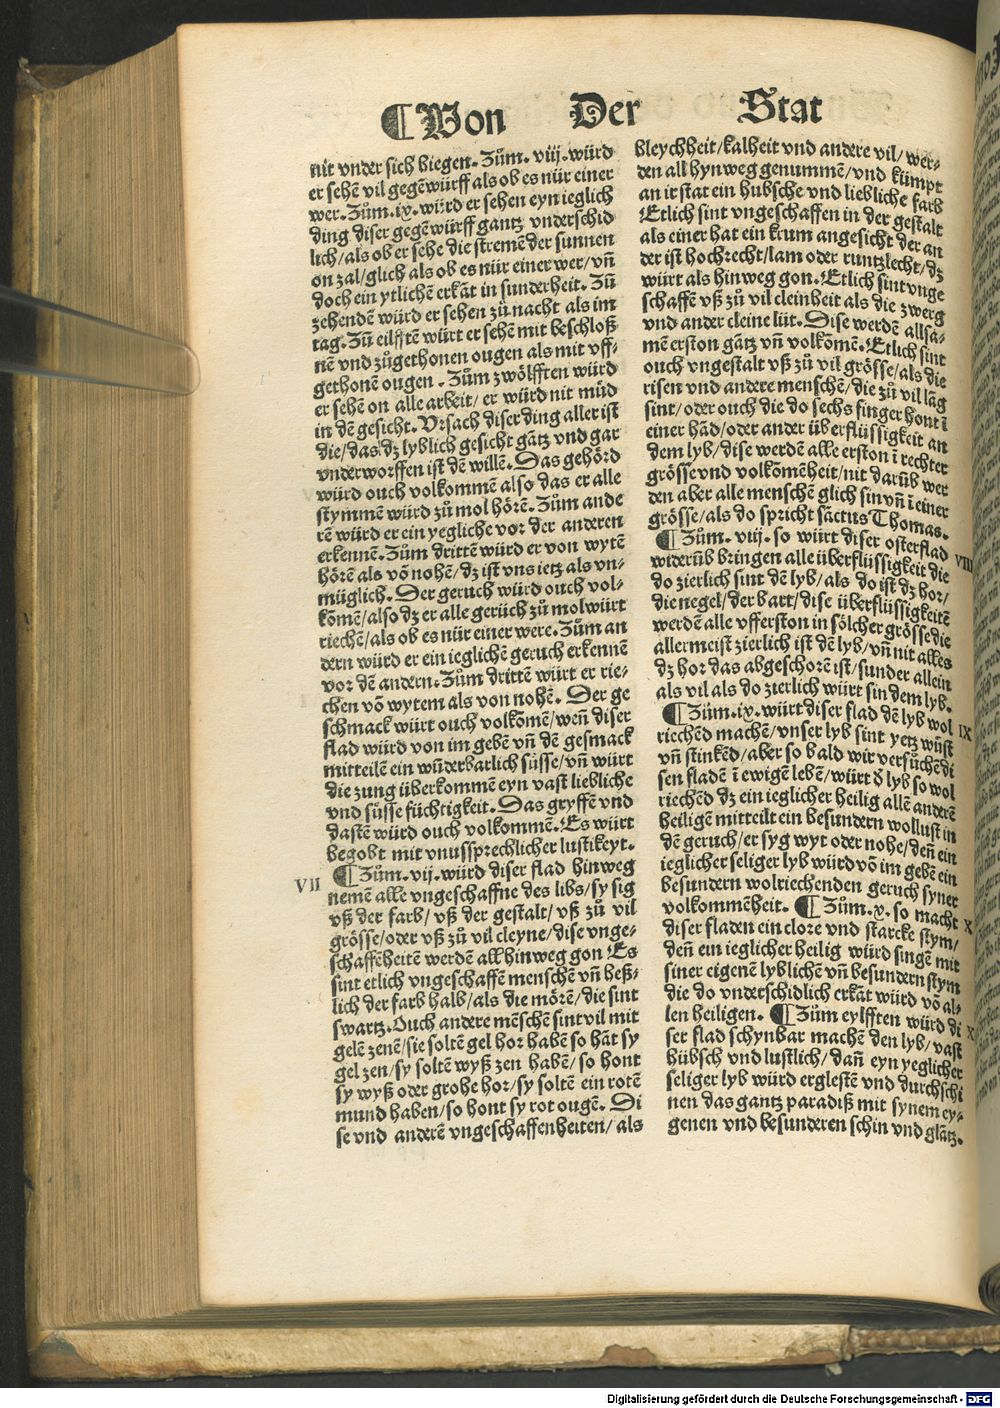 ¶Von Der Stat
nit vnder sich biegen. Zům. viij. würd
er sehẽ vil gegẽwürff als ob es nür einer
wer. Zům. ix. würd er sehen eyn ieglich
ding diser gegẽwürff gantz vnderschid
lich/als ob er sehe die stremẽ der sunnen
on zal/glich als ob es nür einer wer/vñ
doch ein ytlichẽ erkãt in sunderheit. Zů
zehendẽ würd er sehen zů nacht als im
tag. Zů eilfftẽ würt er sehẽ mit beschloß
nẽ vnd zůgethonen ougen als mit vff-
gethonẽ ougen. Zům zwölfften würd
er sehẽ on alle arbeit/ er würd nit müd
in dẽ gesicht. Vrsach diser ding aller ist
die/das dz lyblich gesicht gãtz vnd gar
vnderworffen ist dẽ willẽ. Das gehörd
würd ouch volkommẽ also das er alle
stymmẽ würd zů mol hörẽ. Zům ande
rẽ würd er ein yegliche vor der anderen
erkennẽ. Zům drittẽ würd er von wytẽ
hörẽ als võ nohẽ/dz ist vns ietz als vn-
müglich. Der geruch würd ouch vol-
kõmẽ/also dz er alle gerüch zů mol würt
riechẽ/als ob es nür einer were. Zům an
dern würd er ein ieglichẽ geruch erkennẽ
vor dẽ andern. Zům drittẽ würt er rie-
chen võ wytem als von nohẽ. Der ge
schmack würt ouch volkõmẽ/weñ diser
flad würd von im gebẽ vñ dẽ gesmack
mitteilẽ ein wũderbarlich süsse/vñ würt
die zung überkommẽ eyn vast liebliche
vnd süsse füchtigkeit. Das gryffẽ vnd
dastẽ würd ouch volkommẽ. Es würt
begobt mit vnussprechlicher lustikeyt.
VII ¶Zům. vij. würd diser flad hinweg
nemẽ alle vngeschaffne des libs/sy sig
vß der farb/ vß der gestalt/ vß zů vil
grösse/oder vß zů vil cleyne/dise vnge-
schaffẽheitẽ werdẽ all hinweg gon Es
sint etlich vngeschaffẽ menschẽ vñ beß-
lich der farb halb/als die mörẽ/die sint
swartz. Ouch andere mẽschẽ sint vil mit
gelẽ zenẽ/sie soltẽ gel hor habẽ so hãt sy
gel zen/sy soltẽ wyß zen habẽ/so hont
sy wyß oder grobe hor/sy soltẽ ein rotẽ
mund haben/so hont sy rot ougẽ. Di
se vnd anderẽ vngeschaffenheiten/ als
bleychheit/kalheit vnd andere vil/wer-
den all hynweg genummẽ/vnd kümpt
an ir stat ein hubsche vnd liebliche farb
Etlich sint vngeschaffen in der gestalt
als einer hat ein krum angesicht der an
der ist hochrecht/lam oder runtzlecht/dz
würt als hinweg gon. Etlich sint vnge
schaffẽ vß zů vil cleinheit als die zwerg
vnd ander cleine lüt. Dise werdẽ allsa-
mẽ erston gãtz vñ volkõmẽ. Etlich sint
ouch vngestalt vß zů vil grösse/als die
risen vnd andere menschẽ/die zů vil lãg
sint/oder ouch die do sechs finger hont ĩ
einer hãd/oder ander überflüssigkeit an
dem lyb/dise werdẽ alle erston ĩ rechter
grösse vnd volkõmẽheit/nit darüb wer
den aber alle menschẽ glich sin vñ ĩ einer
grösse/als do spricht sãctus Thomas.
¶Zům. viij. so würt diser osterflad VIII
widerũb bringen alle überflüssigkeit die
do zierlich sint dẽ lyb/als do ist dz hor/
die negel/der bart/dise überflüssigkeitẽ
werdẽ alle vfferston in sölcher grösse die
allermeist zierlich ist dẽ lyb/vñ nit alles
dz hor das abgeschorẽ ist/sunder allein
als vil als do zierlich würt sin dem lyb.
¶Züm. ix. würt diser flad dẽ lyb wol IX
riechẽd machẽ/vnser lyb sint yetz wüst
vñ stinkẽd/aber so bald wir versůchẽ di
sen fladẽ ĩ ewigẽ lebẽ/würt ð lyb so wol
riechẽd dz ein ieglicher heilig allẽ anderẽ
heiligẽ mitteilt ein besundern wollust in
dẽ geruch/er syg wyt oder nohe/deñ ein
ieglicher seliger lyb würd võ im gebẽ ein
besundern wolriechenden geruch syner
volkommẽheit. ¶Zům. x. so macht X
diser fladen ein clore vnd starcke stym/
deñ ein ieglicher heilig würd singẽ mit
siner eigenẽ lyblichẽ vñ besundern stym
die do vnderschidlich erkãt würd võ al-
len heiligen. ¶Zům eylfften würd di X
ser flad schynbar machẽ den lyb/vast
hübsch vnd lustlich/dañ eyn yeglicher
seliger lyb würd erglestẽ vnd durchschi
nen das gantz paradiß mit synem ey-
genen vnd besunderen schin vnd glãtz.
Digitalisierung gefördert durch die Deutsche Forschungsgemeinschaft - DFG